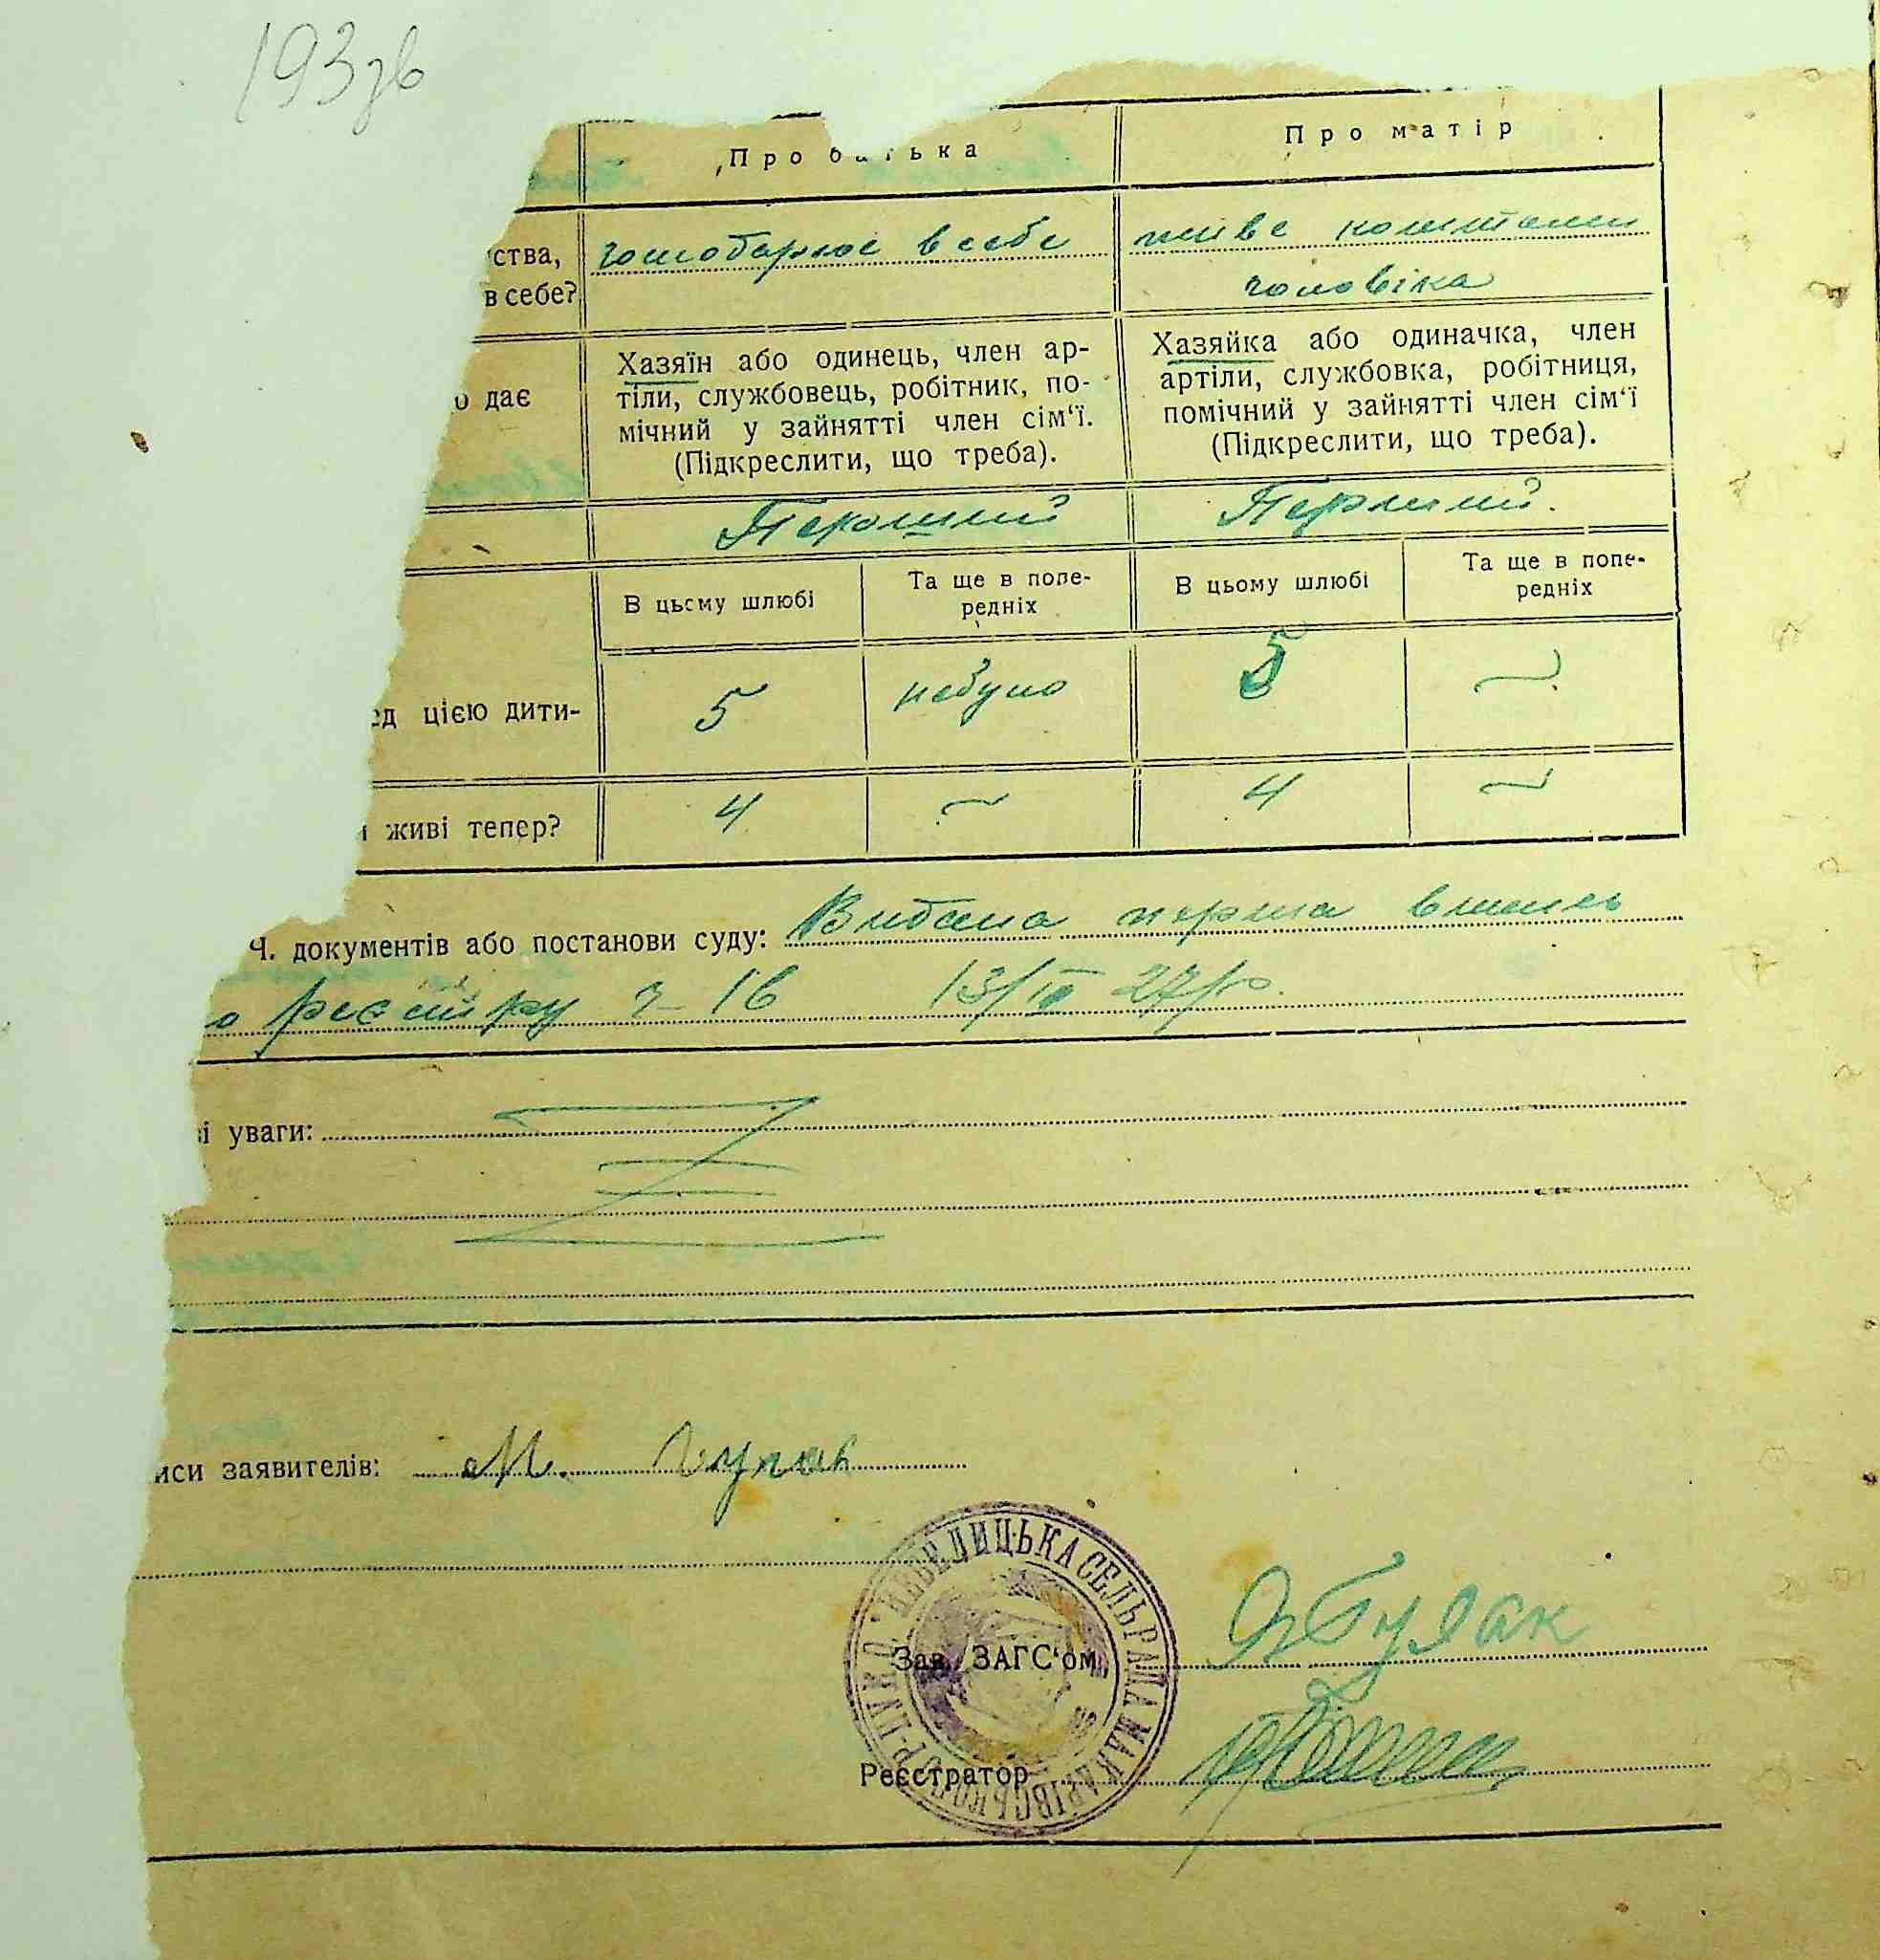 193зв
Про батька
Про матір
ства,
в себе?
господарює в себе
живе коштами
чоловіка
о дає
Хазяїн або одинець, член ар-
тіли, службовець, робітник, по-
мічний у зайнятті член сім‘ї.
(Підкреслити, що треба).
Хазяйка або одиначка, член
артіли, службовка, робітниця,
помічний у зайнятті член сім‘ї
(Підкреслити, що треба).
Перший.
В цьому шлюбі
Та ще в попе-
редніх
В цьому шлюбі
Та ще в попе-
редніх
ед цією дити-
5
небуло
5
і живі тепер?
4
4
Ч. документів або постанови суду: Видана перша випись
о реєстру 16 13/ 27/р.
і уваги:
иси заявителів: М.
НЕБЕЛИЦЬКА СЕЛЬРАДА МАКАРІВСЬКОГО Р-НУ К.О.
Зав. ЗАГС‘ом Булак
Реєстратор